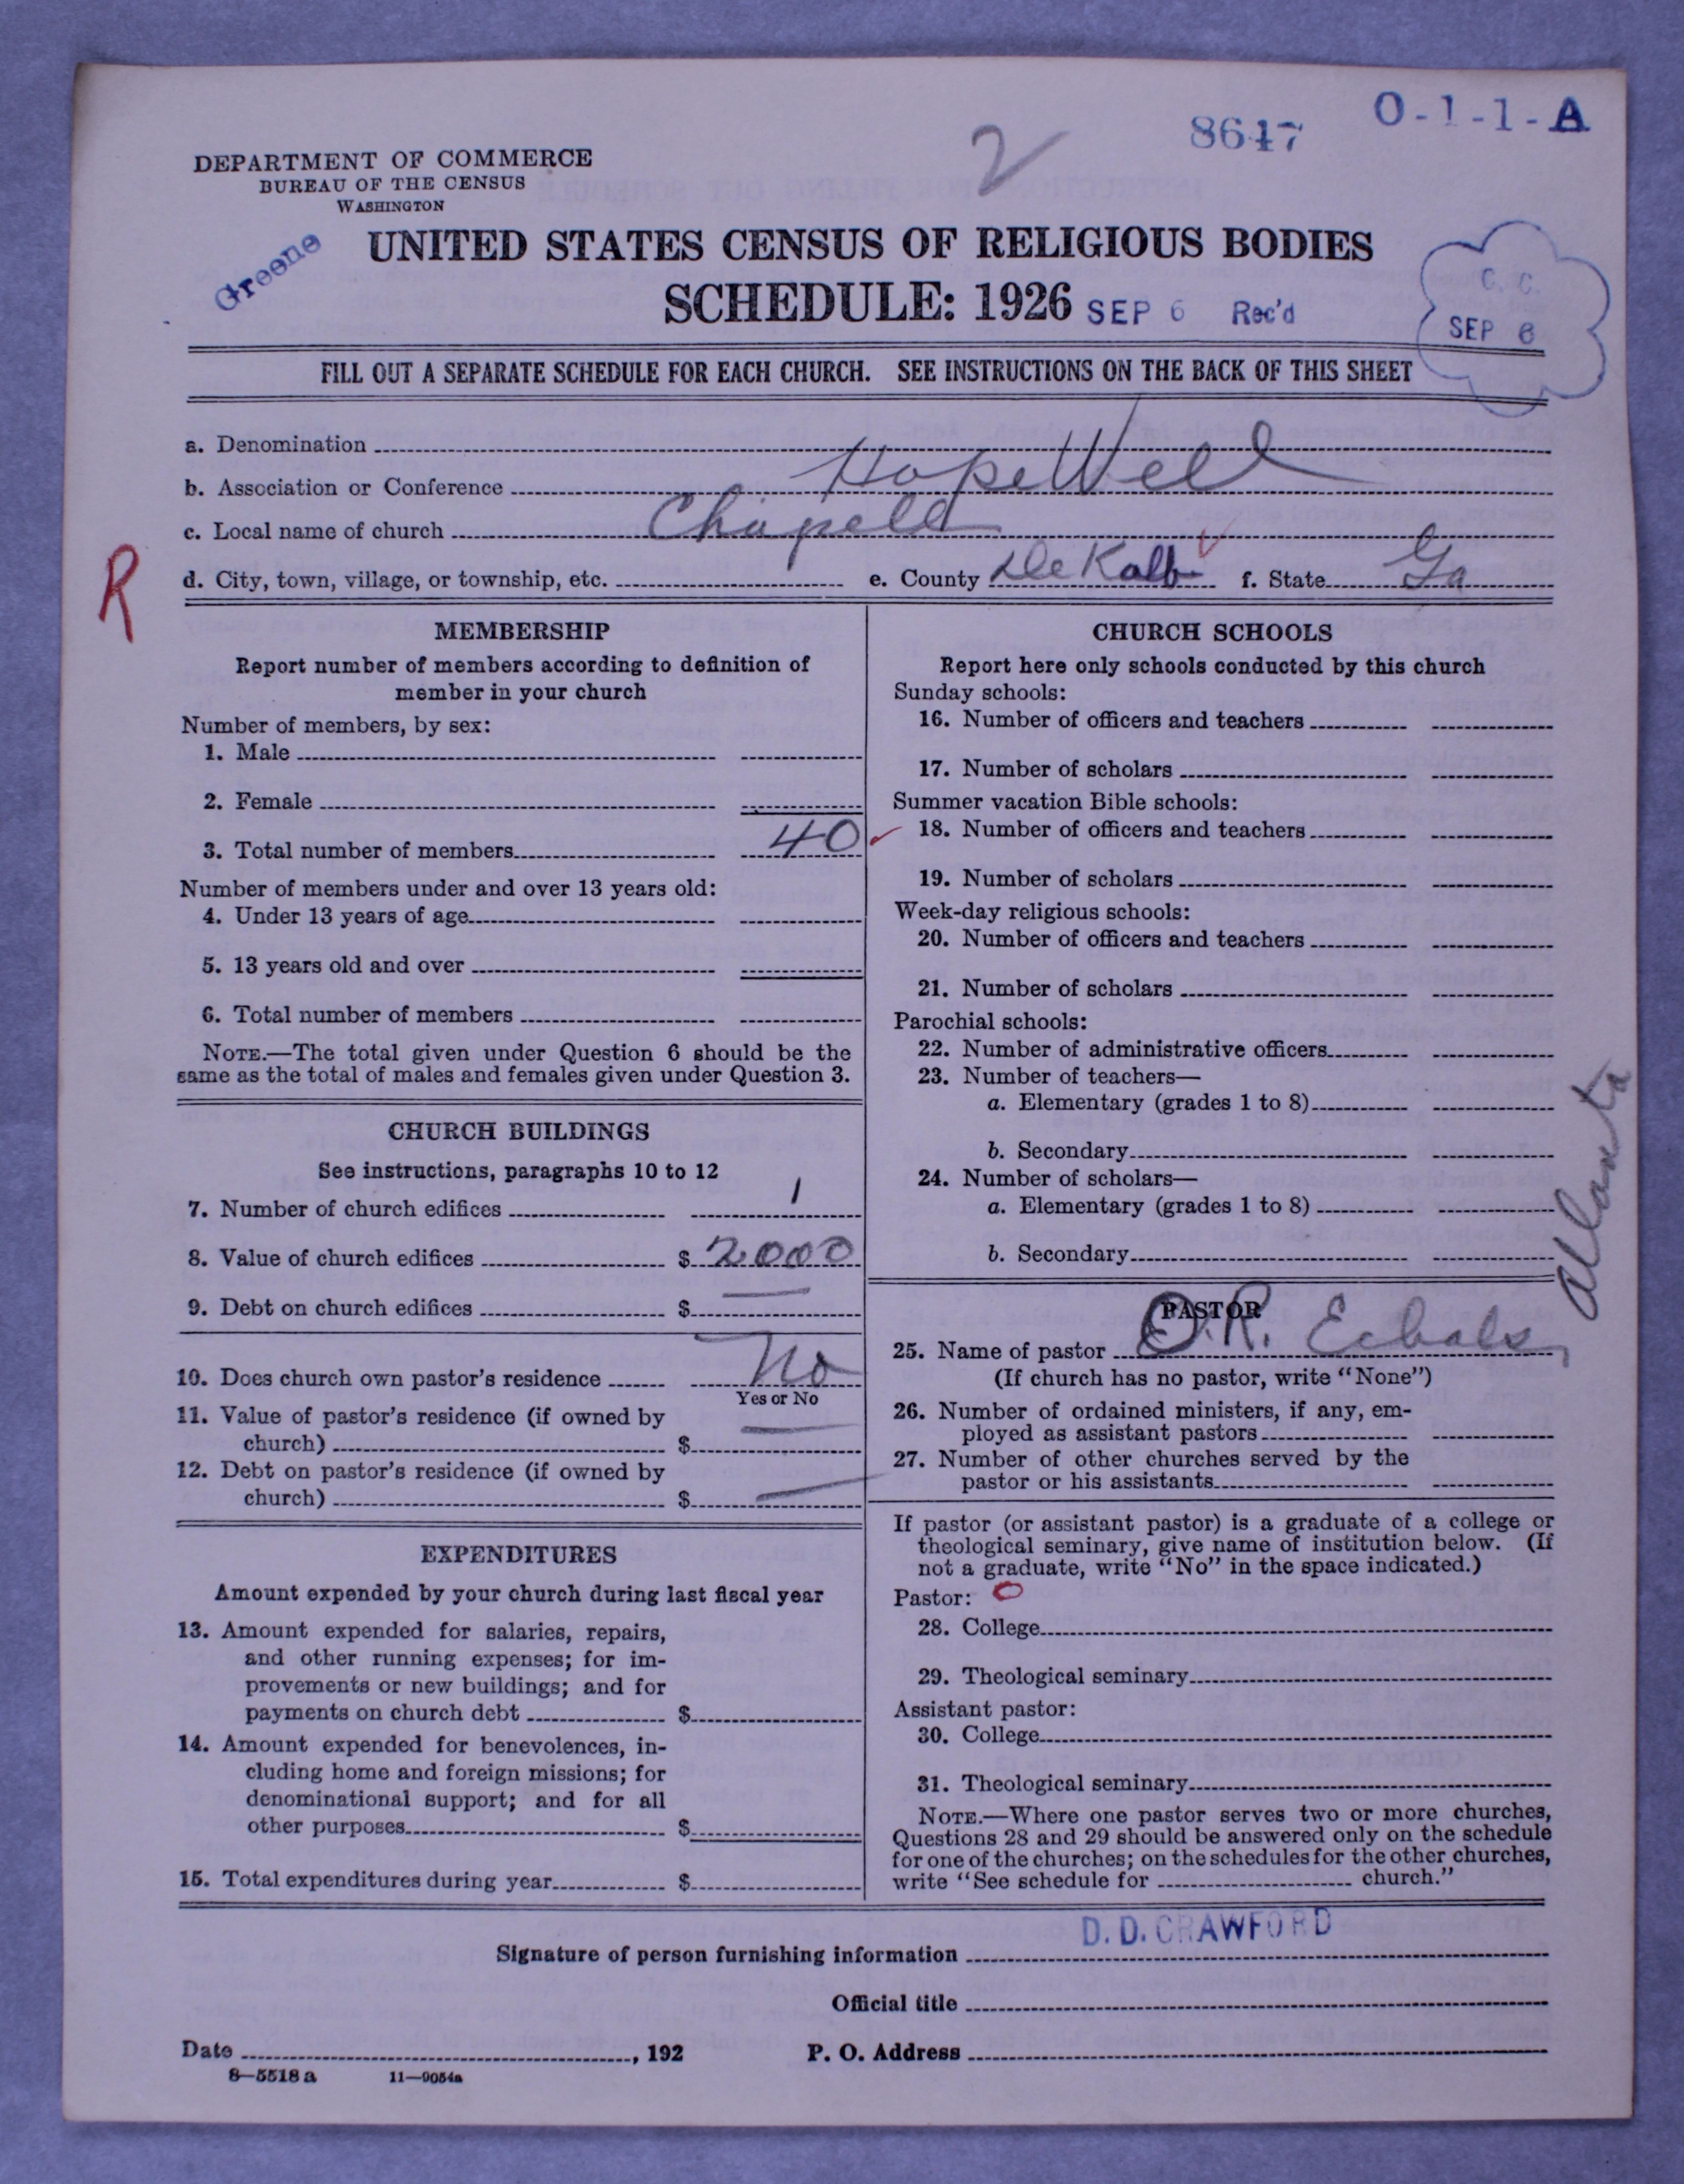 O-1-1-A
8647
2
DEPARTMENT OF COMMERCE
BUREAU OF THE CENSUS
WASHINGTON
Greene
UNITED STATES CENSUS OF RELIGIOUS BODIES
SCHEDULE: 1926 SEP 6 Rec'd
C. C.
SEP 6
FILL OUT A SEPARATE SCHEDULE FOR EACH CHURCH. SEE INSTRUCTIONS ON THE BACK OF THIS SHEET
a. Denomination
b. Association or Conference HopeWell
c. Local name of church Chapell
d. City, town, village, or township, etc. e. County DeKalb f. State Ga
R
MEMBERSHIP
Report number of members according to definition of
member in your church
Number of members, by sex:
1. Male
2. Female
3. Total number of members 40
Number of members under and over 13 years old:
4. Under 13 years of age
5. 13 years old and over
6. Total number of members
NOTE.—The total given under Question 6 should be the
same as the total of males and females given under Question 3.
CHURCH BUILDINGS
See instructions, paragraphs 10 to 12
7. Number of church edifices 1
8. Value of church edifices $ 2000
9. Debt on church edifices $ —
10. Does church own pastor's residence No
Yes or No
11. Value of pastor's residence (if owned by
church) $ —
12. Debt on pastor's residence (if owned by
church) $ —
EXPENDITURES
Amount expended by your church during last fiscal year
13. Amount expended for salaries, repairs,
and other running expenses; for im-
provements or new buildings; and for
payments on church debt $
14. Amount expended for benevolences, in-
cluding home and foreign missions; for
denominational support; and for all
other purposes $
15. Total expenditures during year $
CHURCH SCHOOLS
Report here only schools conducted by this church
Sunday schools:
16. Number of officers and teachers
17. Number of scholars
Summer vacation Bible schools:
18. Number of officers and teachers
19. Number of scholars
Week-day religious schools:
20. Number of officers and teachers
21. Number of scholars
Parochial schools:
22. Number of administrative officers
23. Number of teachers—
a. Elementary (grades 1 to 8)
b. Secondary
24. Number of scholars—
a. Elementary (grades 1 to 8)
b. Secondary
Atlanta
PASTOR
25. Name of pastor O. R. Echols
(If church has no pastor, write "None")
26. Number of ordained ministers, if any, em-
ployed as assistant pastors
27. Number of other churches served by the
pastor or his assistants
If pastor (or assistant pastor) is a graduate of a college or
theological seminary, give name of institution below. (If
not a graduate, write "No" in the space indicated.)
Pastor: 0
28. College
29. Theological seminary
Assistant pastor:
30. College
31. Theological seminary
NOTE.—Where one pastor serves two or more churches,
Questions 28 and 29 should be answered only on the schedule
for one of the churches; on the schedules for the other churches,
write "See schedule for church."
Signature of person furnishing information D. D. CRAWFORD
Official title
Date , 192 P. O. Address
8—5518 a 11—9054a